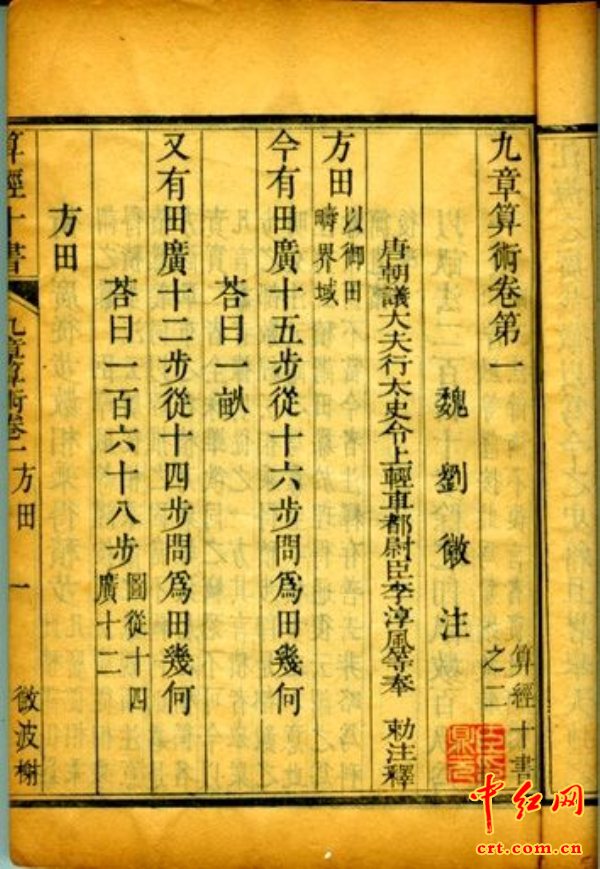 九章算術卷第一
算經十書
之二
魏劉徽注
唐朝議大夫行太史令上輕車都尉臣李淳風等奉 勅注釋
方田以御田
疇界域
今有田廣十五步從十六步問爲田幾何
荅曰一畝
又有田廣十二步從十四步問爲田幾何
荅曰一百六十八步圖從十四
廣十二
方田
算經十書 九章算術卷一方田 一 微波榭
中红网
crt.com.cn